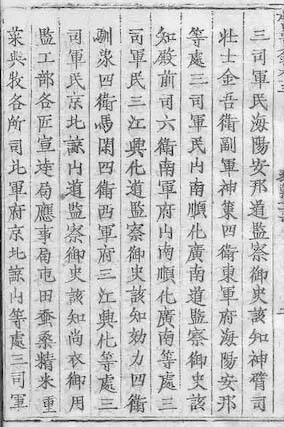 三司軍民海陽安邦道監察御史該知神臂司
壮士金吾衛副軍神策四衛東軍府海陽安邦
等處三司軍民山南順化廣南道監察御史該
知殿前司六衛南軍府山南順化廣南等處三
司軍民三江興化道監察御史該知効力四衛
馴象四衛馬閑四衛西軍府三江興化等處三
司軍民京北諒山道監察御史該知尚衣御用
監工部各匠宣達局應事局屯田蚕桑精米重
菜典牧各所司北軍府京北諒山等處三司軍